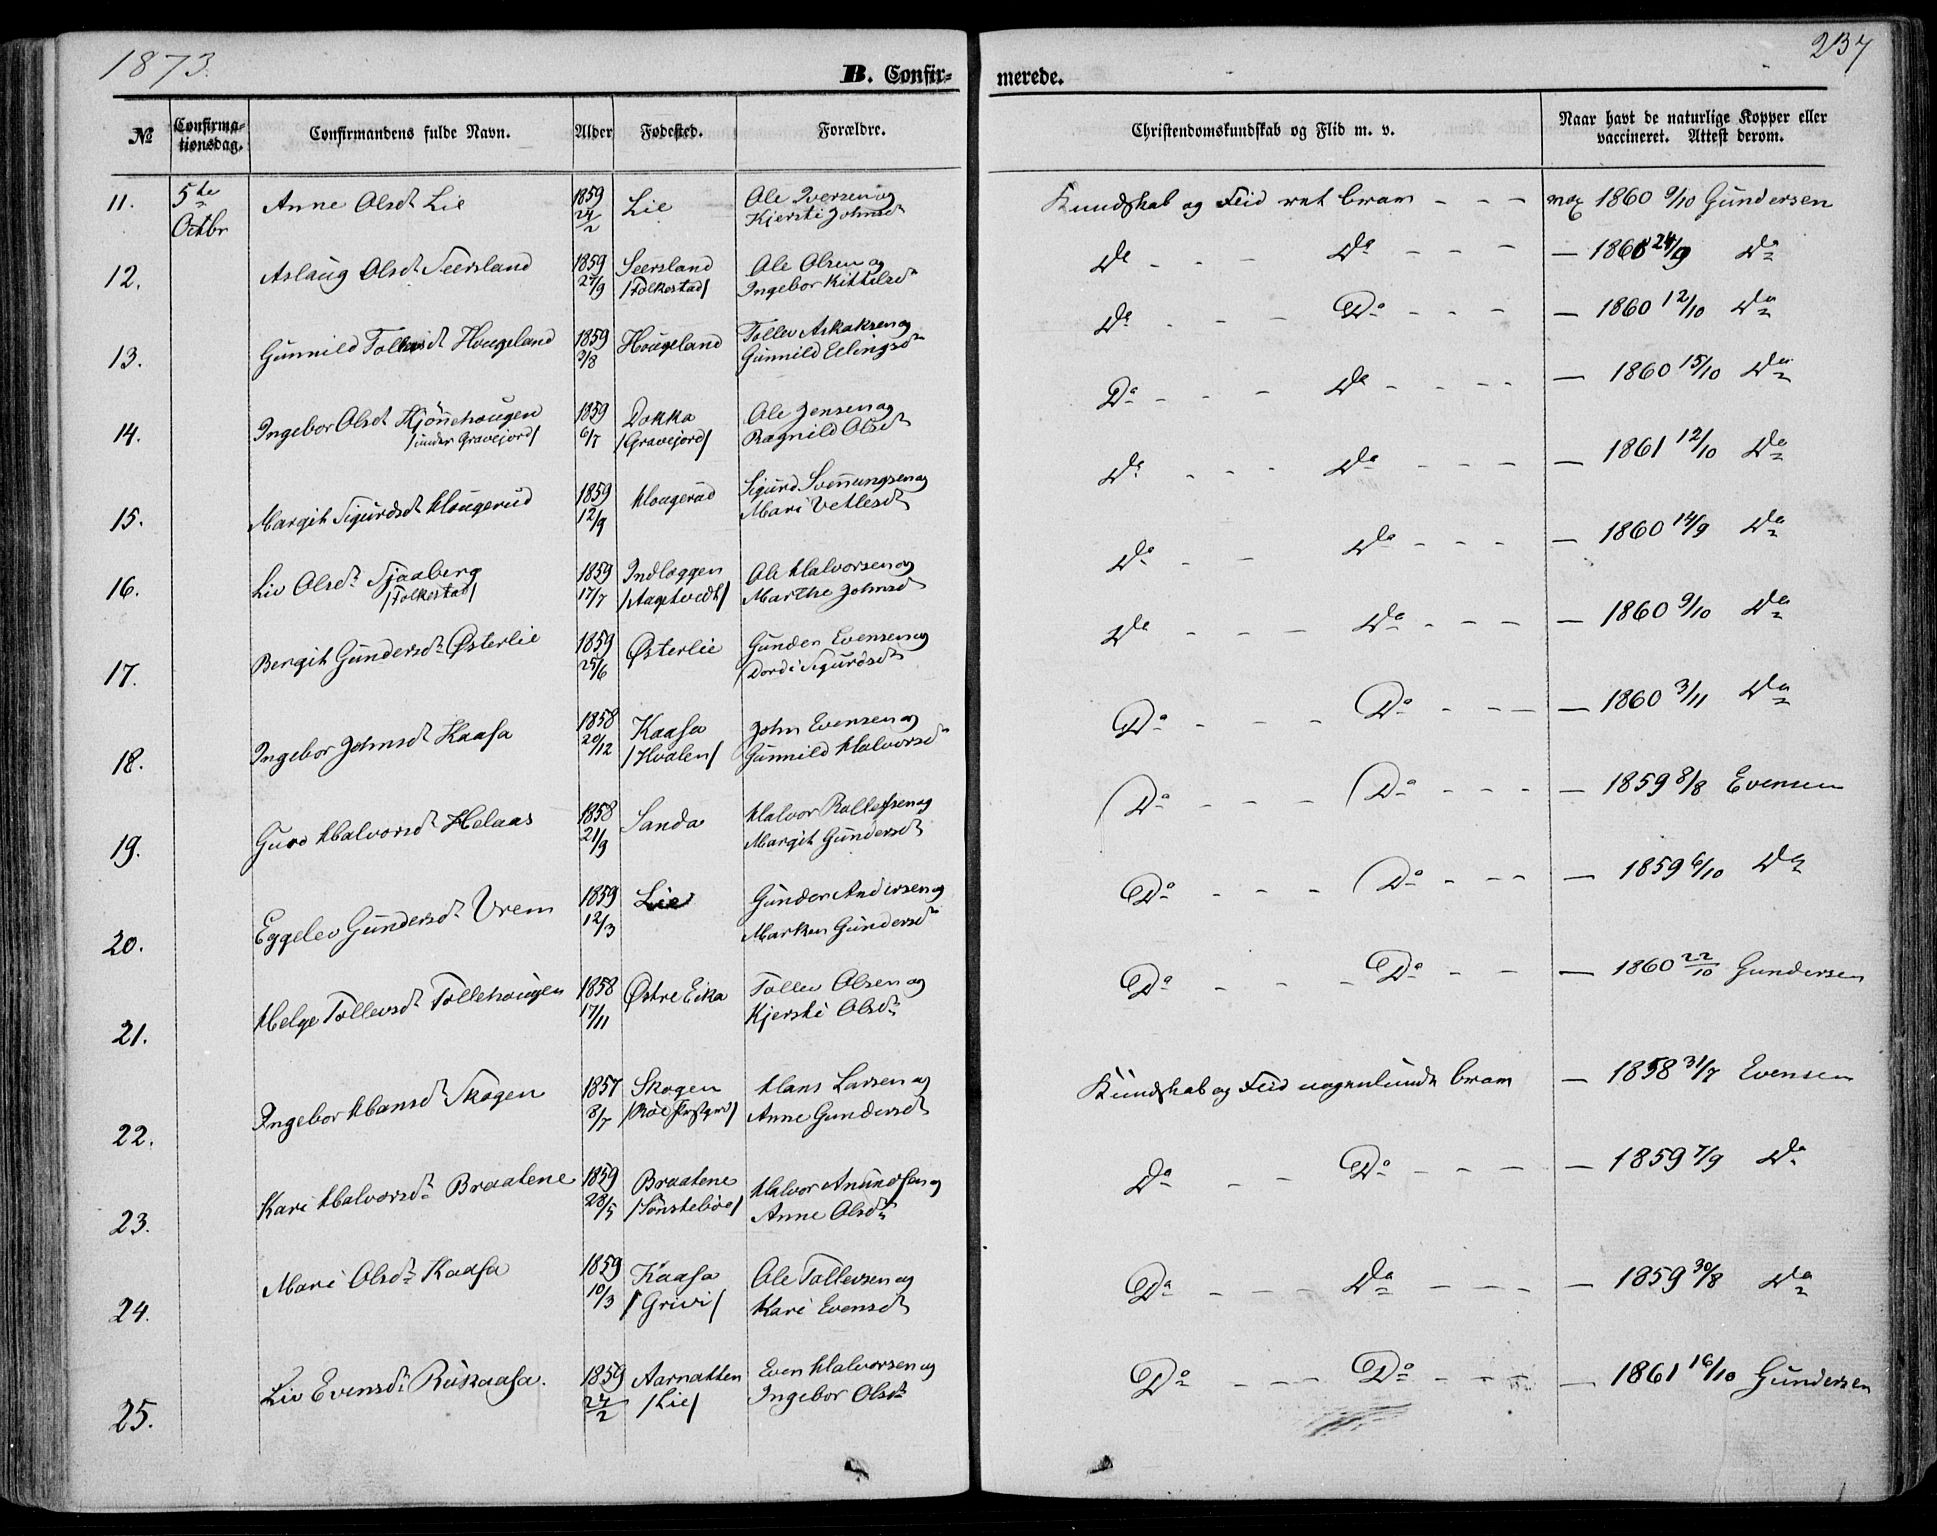 1873.
237
B. Confir-
merede.
№
Confirma-
tionsdag.
Confirmandens fulde Navn.
Alder
Fødested.
Forældre.
Christendomskundskab og Flid m. v.
Naar havt de naturlige Kopper eller
vaccineret. Attest derom.
11. 5te Octbr Anne Olsdt Lie 1859 24/2 Lie Ole Iversen og Kjersti Johnsdt Kundskab og Flid ret bram - - - 1860 9/10 Gundersen
12. Aslaug Olsdt Seersland 1859 25/9 Seersland /Folkestad/ Ole Olsen og Ingebor Kittilsdt Do - - - Do - - - — 24/9 Do
13. Gunnild Hougeland 1859 3/8 Hougeland Tollev Aslaksen og Gunnild Do - - - Do - - - — 1860 12/10 Do
14. Ingebor Olsdt Kjønnehougen /under Gravejord/ 1859 6/7 Dokka /Gravejord/ Ole Jensen og Ragnild Olsdt Do - - - Do - - - — 1860 15/10 Do
15. Margit Sigurdsdt Hougerud 1859 12/9 Hougerud Sigurd Svennungsen og Mari Vetlesdt Do - - - Do - - - — 1861 12/10 Do
16. Liv Olsdt Sjaaberg /Folkestad/ 1859 17/7 Indlæggen Ole Halvorsen og Marthe Johnsdt Do - - Do - - - — 1860 14/9 Do
17. Bergit Gundersdt Østerlie 1859 25/6 Østerlie Gunder Evensen og Dordi Sigurdsdt Do - - - Do - - - — 1860 9/10 Do
18. Ingebor Johnsdt Kaasa 1858 20/12 Kaasa /Hvalen/ John Evensen og Gunnild Halvorsdt Do - - - Do - - - — 1860 3/11 Do
19. Guro Halvorsdt Helaas 1858 21/9 Sanda Halvor Rollefsen og Margit Gundersdt Do - - - Do - - - — 1859 8/8 Evensen
20. Eggelev Gundersdt Vrem 1859 12/3 Lie Gunder Andersen og Marken Gundersdt Do - - - Do - - - — 1859 6/10 Do
21. Helge Tollevsdt Tollehougen 1858 17/11 Østre Eika Tollev Olsen og Kjersti Olsdt Do - - - Do - - — 1860 22/10 Gundersen
22. Ingebor Hansdt Skogen 1857 8/7 Skogen Hans Larsen og Anne Gundersdt Kundskab og Flid nogenlunde bram — 1858 31/7 Evensen
23. Kari Halvorsdt Braatene 1859 28/5 Braatene /Sønstebøe/ Halvor Anundsen og Anne Olsdt Do - - Do - - - — 1859 7/9 Do
24. Mari Olsdt Kaasa 1859 10/3 Kaasa /Grivi/ Ole Tollevsen og Kari Evensdt Do - - - Do - - - — 1859 30/8 Do
25. Liv Evensdt Rukaasa. 1859 27/2 Aarnatten /Lie/ Even Halvorsen og Ingebor Olsdt Do - - - Do - - - — 1861 16/10 Gundersen